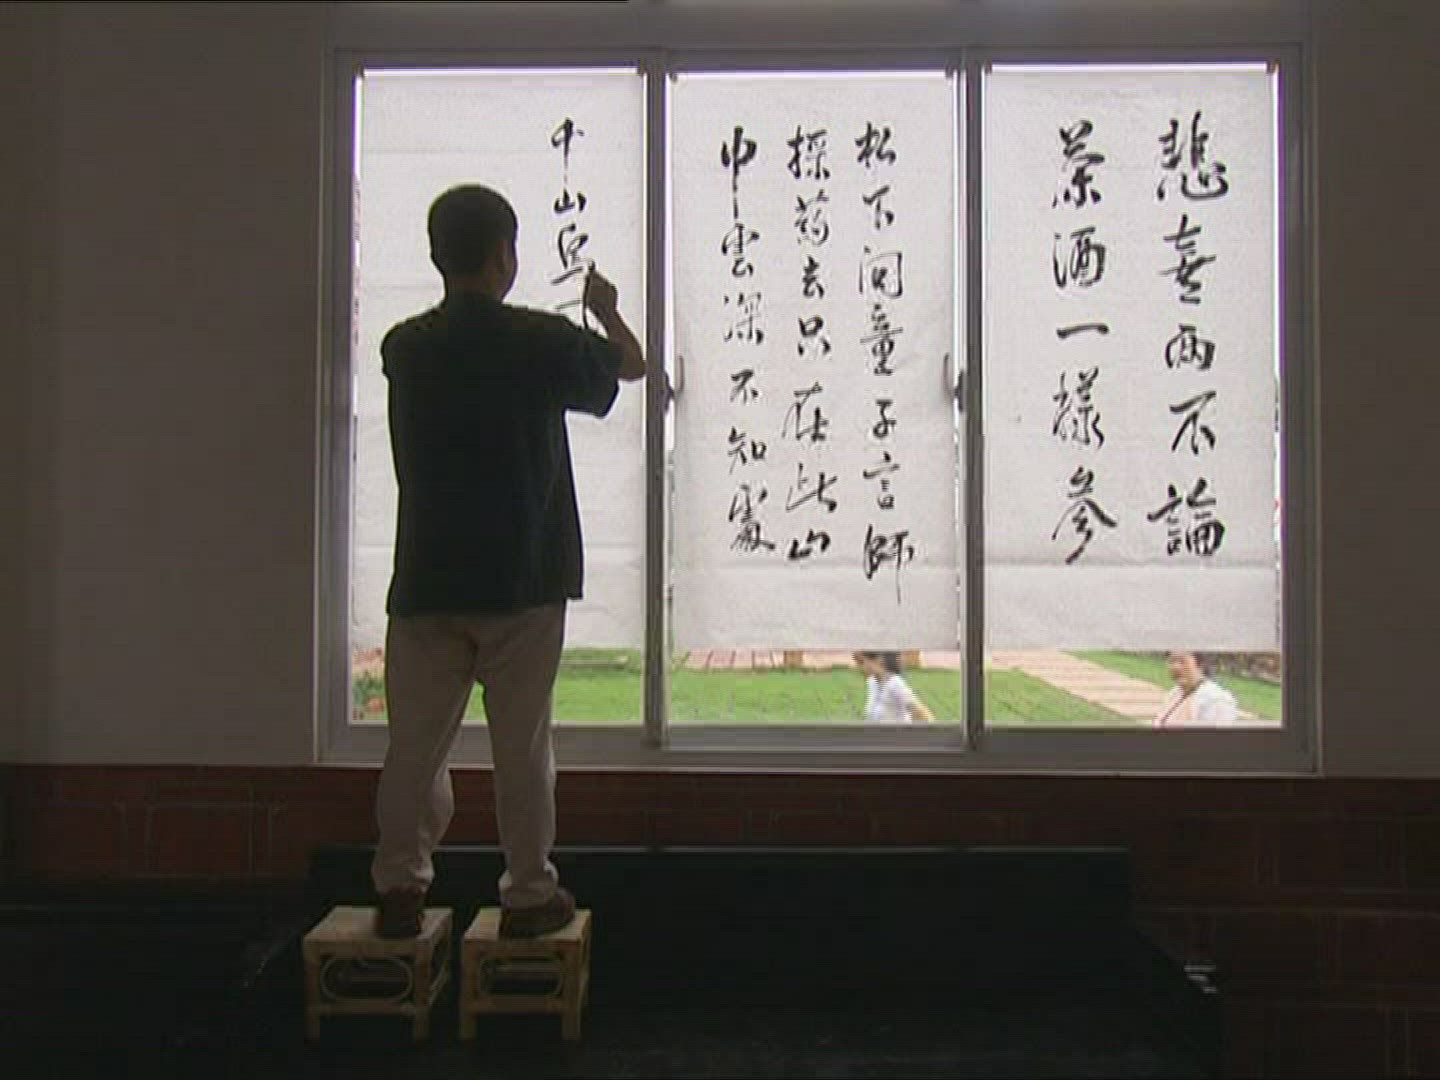 悲喜兩不論
茶酒一樣參
松下問童子言師
採药去只在此山
中雲深不知處
千山鳥